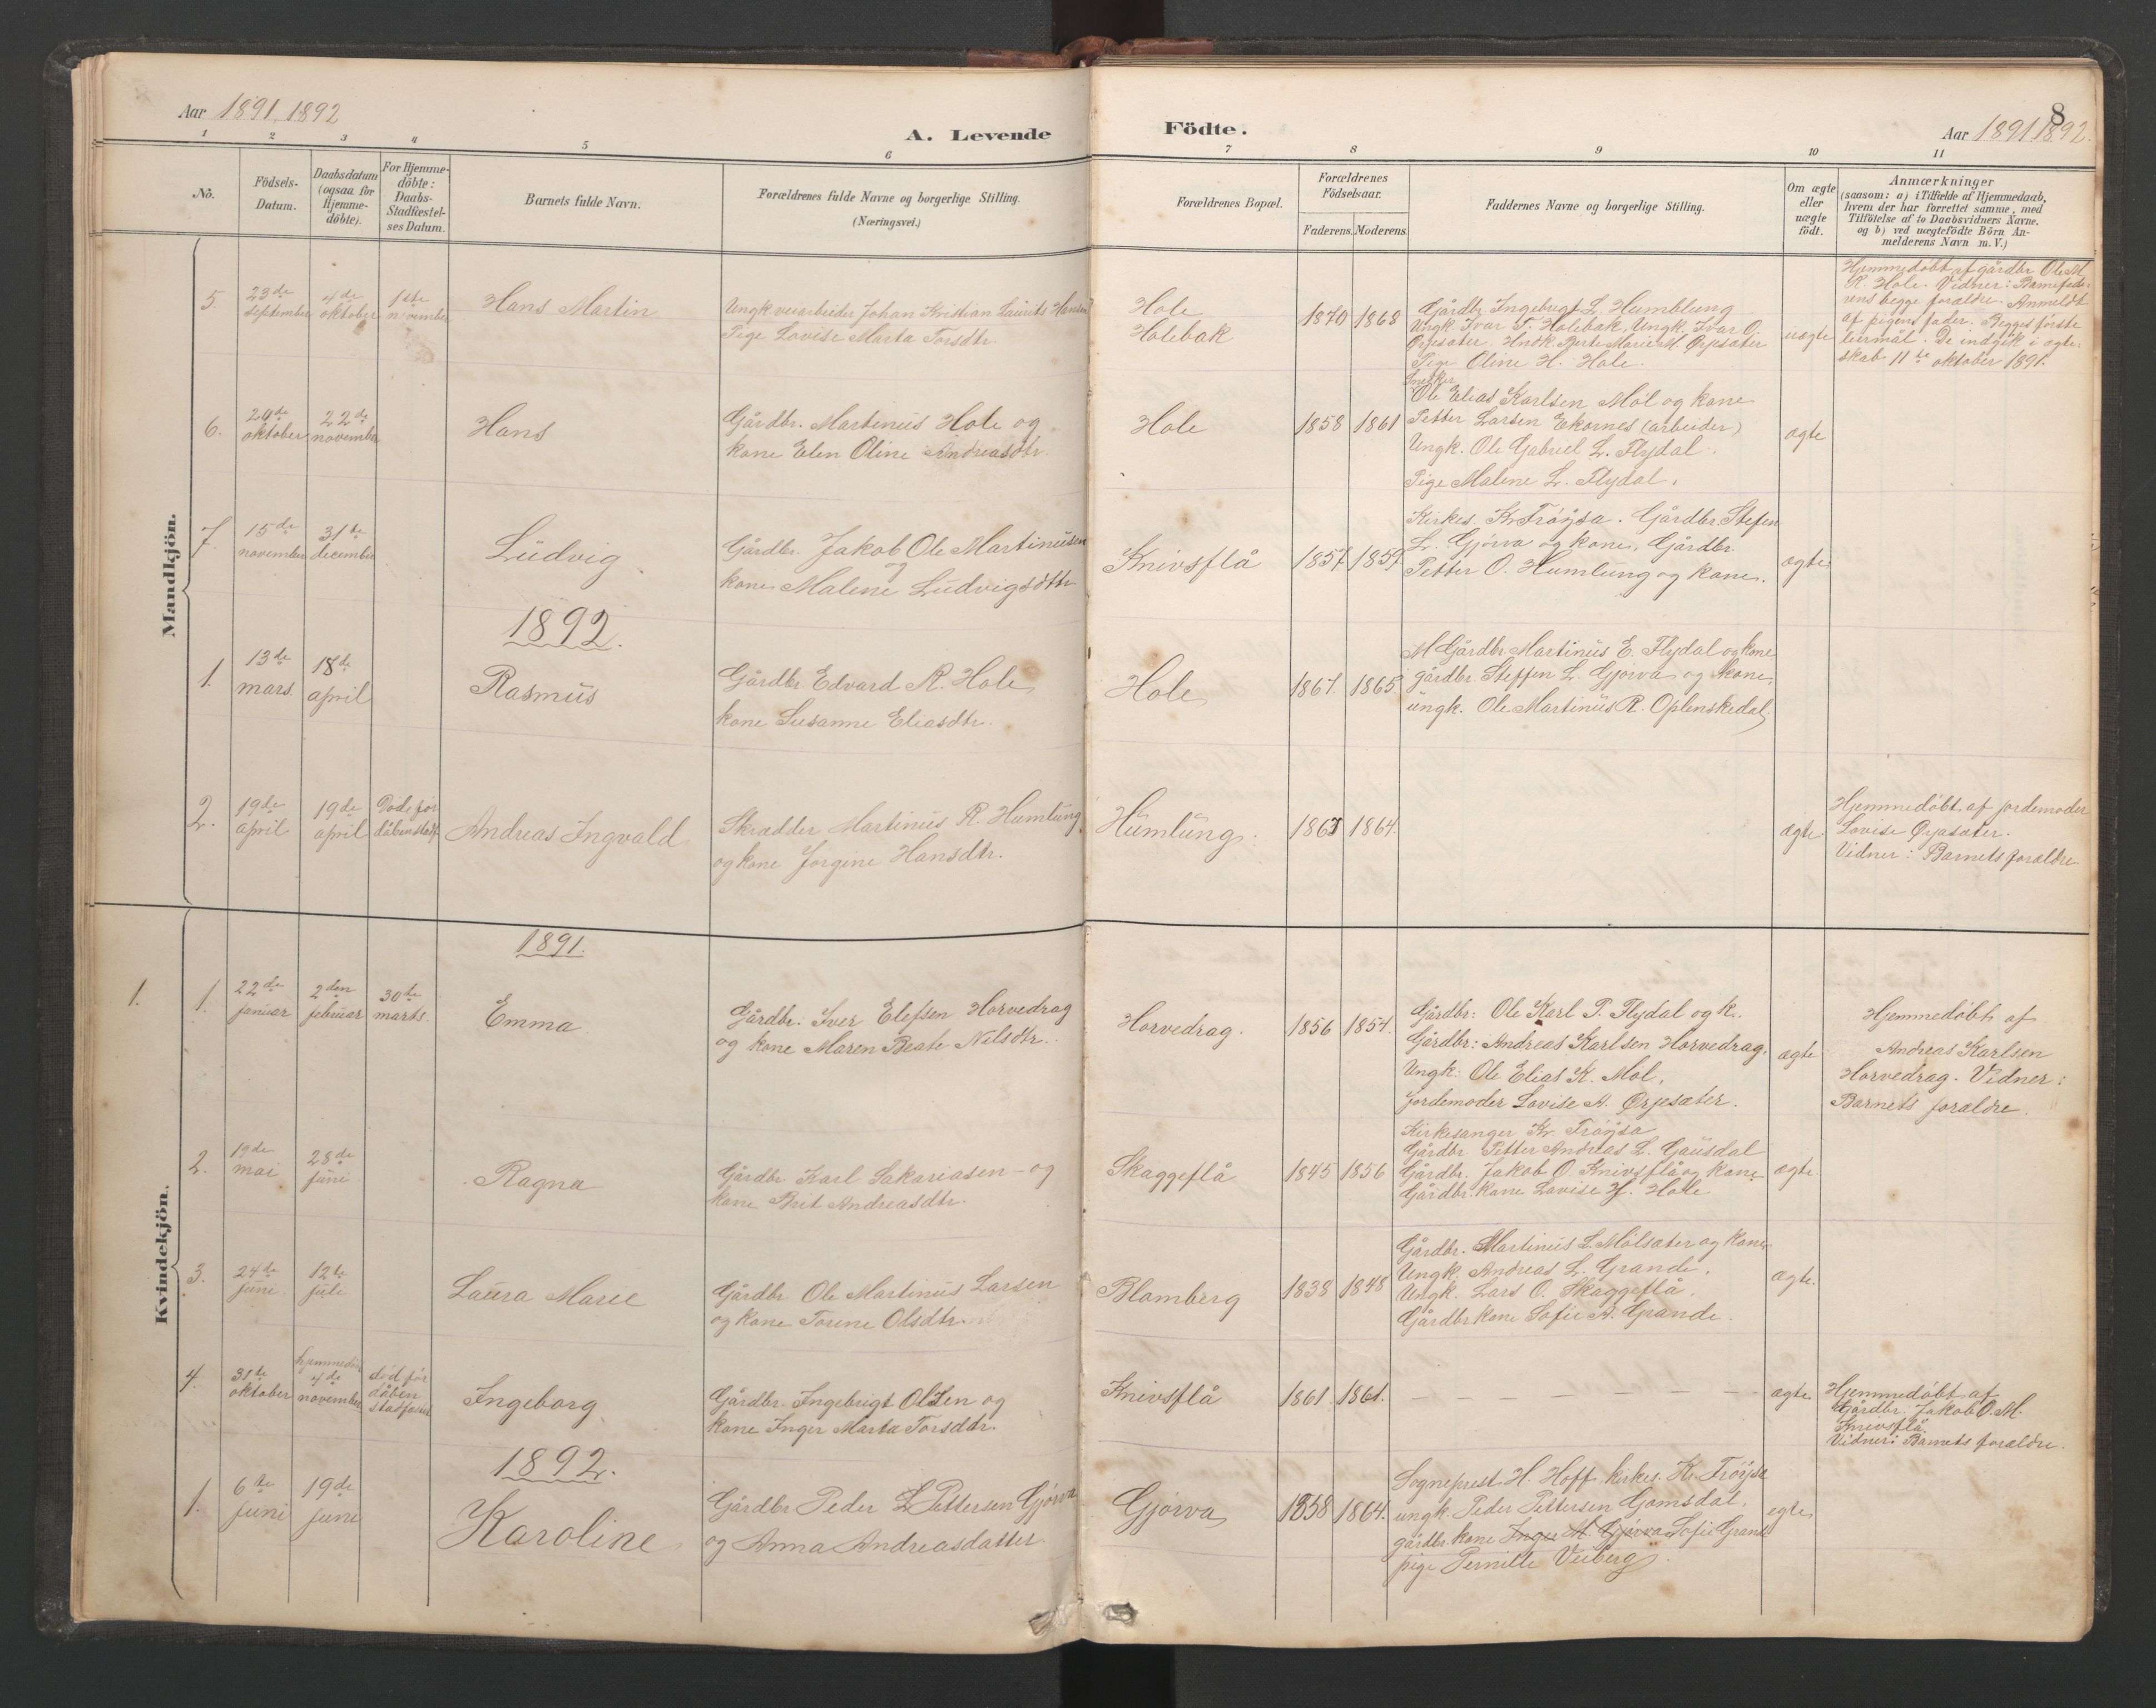 Aar 1891, 1892
A. Levende Födte.
8
Aar 1891 1892.
1 2 3 4 5 6 7 8 9 10 11
No.
Födsels-
Datum.
Daabsdatum
(ogsaa for
Hjemme-
döbte).
For Hjemme-
döbte:
Daabs-
Stadfæstel-
ses Datum.
Barnets fulde Navn.
Forældrenes fulde Navne og borgerlige Stilling.
(Næringsvei.)
Forældrenes Bopæl.
Forældrenes
Födselsaar.
Faderens. Moderens.
Faddernes Navne og borgerlige Stilling.
Om ægte
eller
uægte
födt.
Anmærkninger
(saasom: a) i Tilfælde af Hjemmedaab,
hvem der har forrettet samme, med
Tilföielse af to Daabsvidners Navne.
og b) ved uægtefödte Börn An-
melderens Navn m.V.)
Mandkjön.
5.
23de
september
4de
oktober
1ste
november
Hans Martin
Ungk veiarbeider Johan Kristian Laurits Hansen
Pige Lovise Marta Torsdtr.
Hole
Holebak
1870 1868
Gårdbr Ingebrigt L. Humblung
Ungk Ivar T. Holebak, Ungk. Ivar O.
Ørjesæter. Hndk. Berte Marie M Ørjesæter
Pige Oline H. Hole.
uægte
Hjemmedøbt af gårdbr Ole M.
R. Hole. Vidner: Barnefade-
rens begge forældre. Anmeldt
af pigens fader. Begges første
leiermål. De indgik i ægte-
skab 11te oktober 1891.
6.
oktober
22de
november
Hans
Gårdbr. Martinus Hole og
kone Elen Oline Andreasdtr.
Hole
1858 1861
Ole Elias Karlsen Mol og kone
Petter Larsen Ekornes (arbeider)
Ungk. Ole Gabriel L. Flydal.
Pige Malene L. Flydal.
ægte
7.
15de
november
31te
december
Ludvig
Gårdbr. Jakob Ole Martinusen
og
kone Malene Ludvigsdtr
Knivsflå
1857. 1859.
Kirkes. Kr Trøysa. Gårdbr. Stefen
L. Gjørva og kone, Gårdbr.
Petter O. Humlung og kone.
ægte
1892.
1.
13de
mars.
18de
april
Rasmus
Gårdbr. Edvard R. Hole
kone Susanne Eliasdtr.
Hole
1867. 1865
Gårdbr Martinus E. Flydal og kone
gårdbr. Steffen L. Gjørva og kone,
ungk. Ole Martinus R. Oplenskedal,
2.
19de
april
19de
april
Døde før
dåbenstadf.
Andreas Ingvald
Skrædder Martinus R. Humlung
og kone Jorgine Hansdtr.
Humlung.
1864.
ægte
Hjemmedøbt af jordemoder
Lovise Ørjasæter.
Vidner: Barnets forældre.
Kvindekjön.
1891.
1.
1.
22de
januar
2den
februar
30te
marts.
Emma
Gårdbr. Iver Elefsen Horvedrag
og kone Maren Beate Nilsdtr.
Horvedrag.
1856 1854.
Gårdbr: Ole Karl P. Flydal og k.
Gårdbr: Andreas Karlsen Horvedrag,
Ungk: Ole Elias K. Mol,
jordemoder Lovise A. Ørjesæter.
ægte
Hjemmedøbt af
Andreas Karlsen
Horvedrag. Vidner:
Barnets forældre.
2.
19de
mai
28de
juni
Ragna
Gårdbr. Karl Sakariasen - og
kone Brit Andreasdtr.
Skaggeflå
1845 1856
Kirkesanger Kr. Trøysa
Gårdbr. Petter Andreas L. Gausdal
Gårdbr. Jakob O. Knivsflå og kone
Gårdbr. kone Lovise H. Hole
ægte.
3.
24de
juni
12te
juli
Laura Marie
Gårdbr Ole Martinus Larsen
og kone Torine Olsdtr.
Blomberg
1838 1848
Gårdbr. Martinus L. Molsæter og kone
Ungk. Andreas L. Grande.
Ungk. Lars O. Skaggeflå.
Gårdbr kone Sofie A. Grande.
ægte.
4.
31te
oktober
4de
november
død før
dåben
Ingeborg
Gårdbr. Ingebrigt Olsen og
kone Inger Marta Torsdtr.
Knivsflå
1861. 1861.
ægte
Hjemmedøbt af
Gårdbr. Jakob O. M.
Knivsflå.
Vidner: Barnets forældre.
1892.
1.
6te
juni
19de
juni
Karoline
Gårdbr Peder L Pettersen Gjørva
og Anna Andreasdatter
Gjørva
1858 1864.
Sogneprest H. Hoff, kirkes. Kr. Trøysa
ungk. Peder Pettersen Gomsdal,
gårdbr. kone Inger M. Gjørva Sofie Grande
pige Pernille Veiberg.
egte